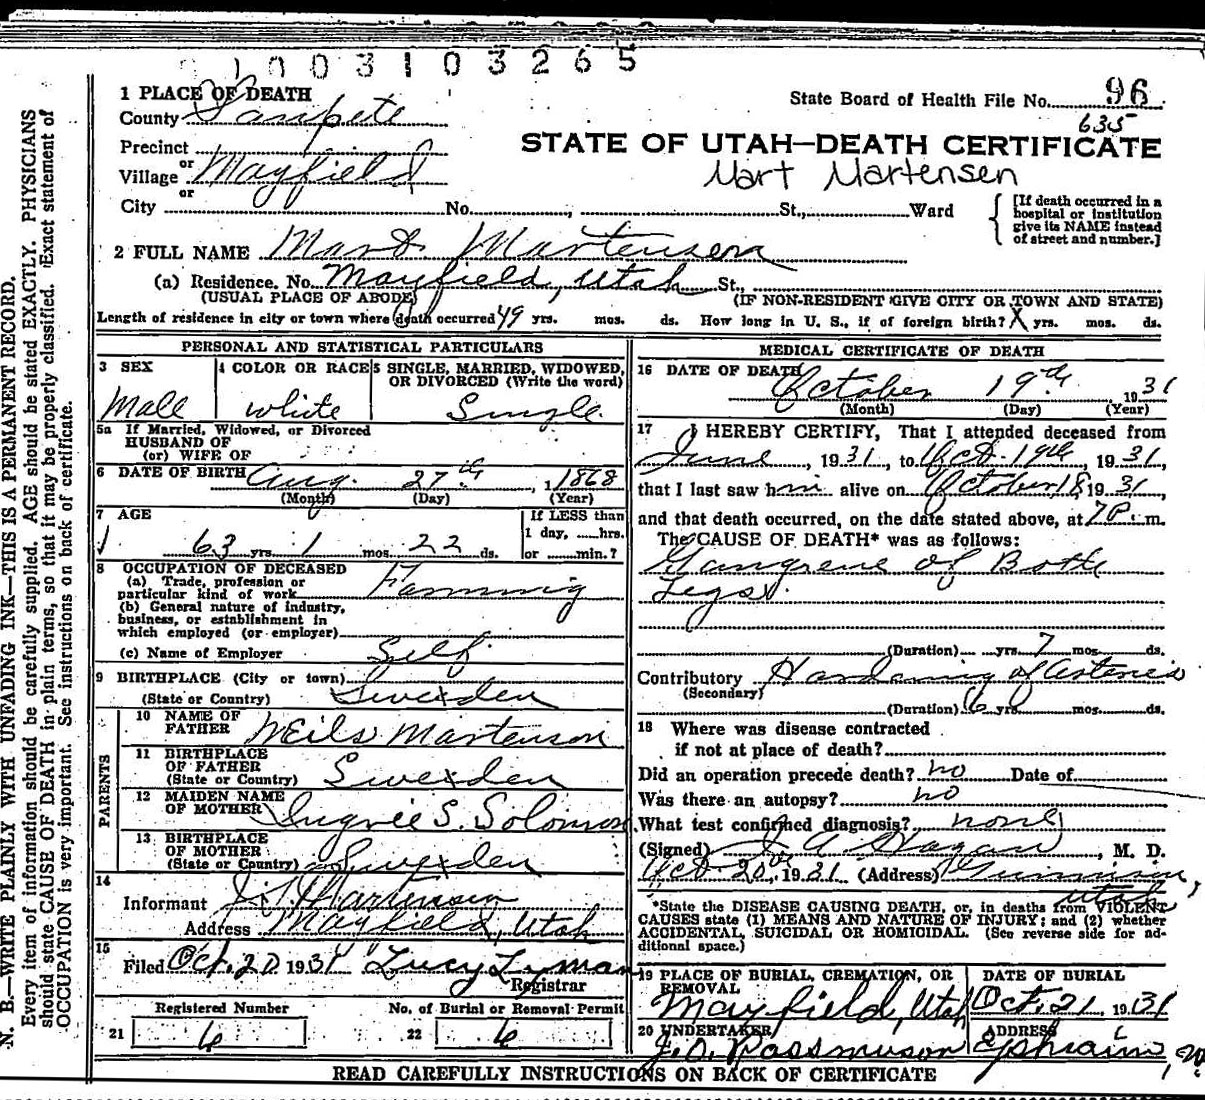 1003103265
1 PLACE OF DEATH
State Board of Health File No. 96
County Sanpete
635
Precinct
STATE OF UTAH—DEATH CERTIFICATE
or
Village Mayfield
Mart Martensen
or
City No. , St., Ward
[If death occurred in a hospital or institution give its NAME instead of street and number.]
2 FULL NAME Mart Martensen
(a) Residence. No. Mayfield, Utah St.,
(USUAL PLACE OF ABODE) (IF NON-RESIDENT GIVE CITY OR TOWN AND STATE)
Length of residence in city or town where death occurred 49 yrs. mos. ds. How long in U. S., if of foreign birth? X yrs. mos. ds.
PERSONAL AND STATISTICAL PARTICULARS
3 SEX
Male
4 COLOR OR RACE
White
5 SINGLE, MARRIED, WIDOWED,
OR DIVORCED (Write the word)
Single
5a If Married, Widowed, or Divorced
HUSBAND OF
(or) WIFE OF
6 DATE OF BIRTH Aug. 27th, 1868
(Month) (Day) (Year)
7 AGE
63 yrs 1 mos. 22 ds.
If LESS than
1 day, ......hrs.
or ......min.?
8 OCCUPATION OF DECEASED
(a) Trade, profession or
particular kind of work Farming
(b) General nature of industry,
business, or establishment in
which employed (or employer)
(c) Name of Employer Self
9 BIRTHPLACE (City or town)
(State or Country) Swexden
PARENTS
10 NAME OF
FATHER Neils Martenson
11 BIRTHPLACE
OF FATHER
(State or Country) Swexden
12 MAIDEN NAME
OF MOTHER S. Solomon
13 BIRTHPLACE
OF MOTHER
(State or Country) Swexden
14
Informant Martensen
Address Mayfield, Utah
15
Filed Oct. 20 1931 Lucy Lyman
Registrar
Registered Number
21 6
No. of Burial or Removal Permit
22 6
MEDICAL CERTIFICATE OF DEATH
16 DATE OF DEATH
October 19th 1931
(Month) (Day) (Year)
17 I HEREBY CERTIFY, That I attended deceased from
June, 1931, to Oct. 19th, 1931,
that I last saw him alive on October 18 1931,
and that death occurred, on the date stated above, at 7 P. m.
The CAUSE OF DEATH* was as follows:
Gangrene of Both
Legs.
(Duration) yrs. 7 mos. ds.
Contributory Hardaning of Arteries
(Secondary)
(Duration) 6 yrs. mos. ds.
18 Where was disease contracted
if not at place of death?
Did an operation precede death? no Date of
Was there an autopsy? no
What test confirmed diagnosis? none
(Signed) J A Hagan, M. D.
Oct. 20th, 1931 (Address) Gunnison,
Utah
*State the DISEASE CAUSING DEATH, or, in deaths from VIOLENT
CAUSES state (1) MEANS AND NATURE OF INJURY; and (2) whether
ACCIDENTAL, SUICIDAL OR HOMICIDAL. (See reverse side for ad-
ditional space.)
19 PLACE OF BURIAL, CREMATION, OR
REMOVAL
Mayfield, Utah
DATE OF BURIAL
Oct. 21 1931
20 UNDERTAKER
J. O. Rassmuson
ADDRESS
Ephraim,
READ CAREFULLY INSTRUCTIONS ON BACK OF CERTIFICATE
N. B.—WRITE PLAINLY WITH UNFADING INK—THIS IS A PERMANENT RECORD.
Every item of information should be carefully supplied. AGE should be stated EXACTLY. PHYSICIANS
should state CAUSE OF DEATH in plain terms, so that it may be properly classified. Exact statement of
OCCUPATION is very important. See instructions on back of certificate.